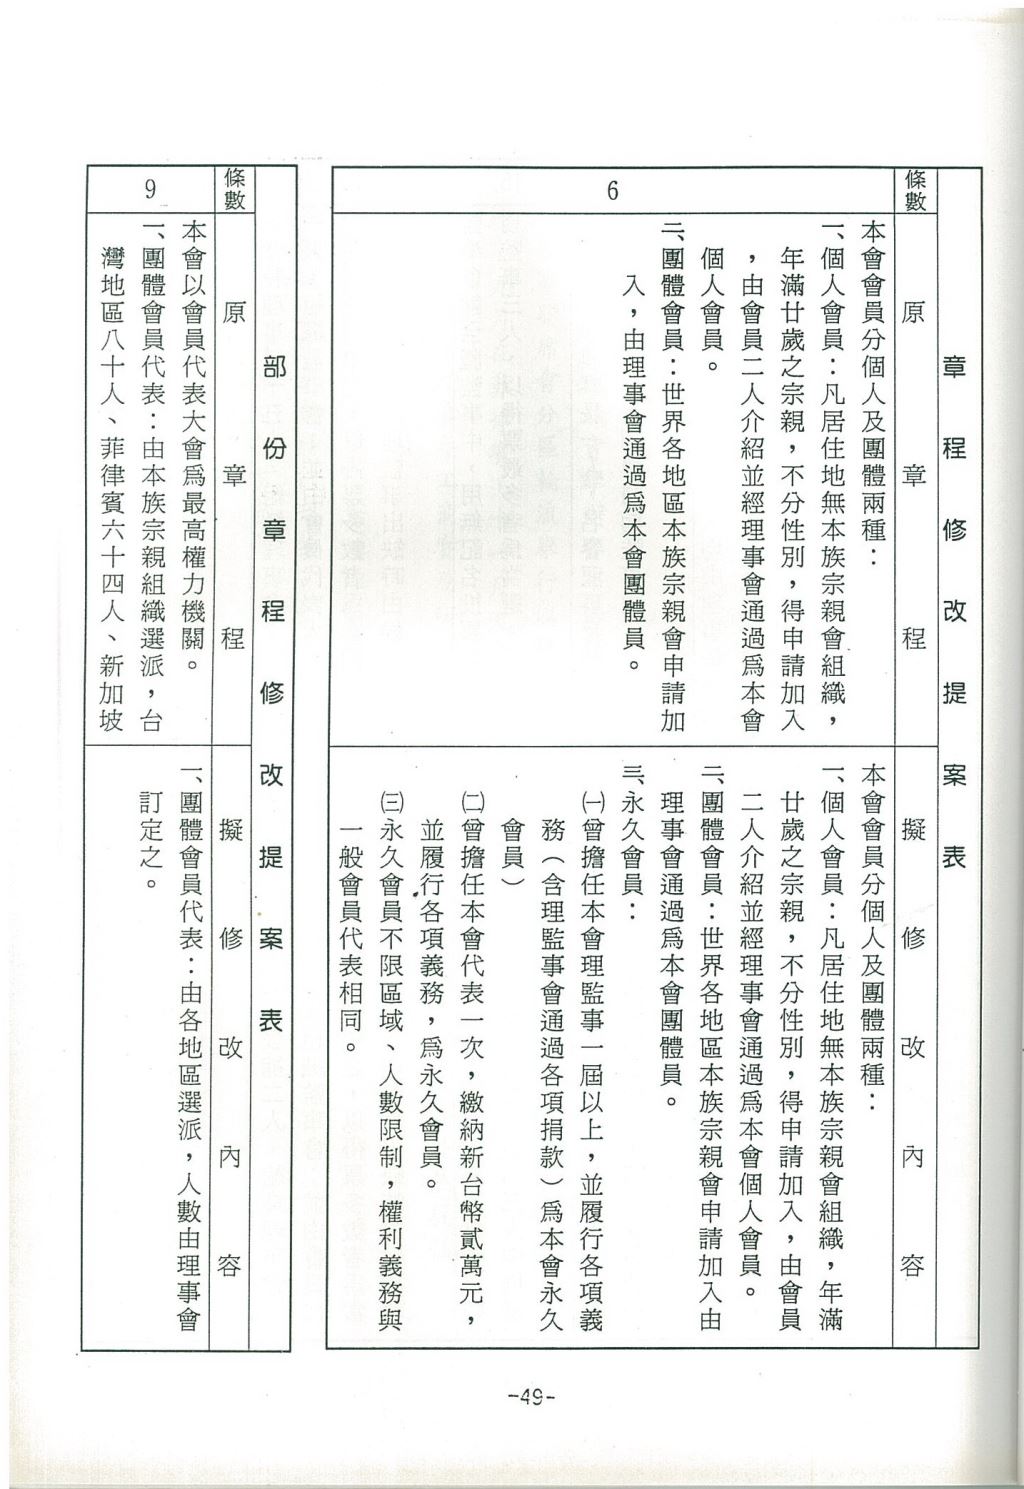 章程修改提案表
條數
原章程
擬修改內容
6
本會會員分個人及團體兩種：
一、個人會員：凡居住地無本族宗親會組織，
年滿廿歲之宗親，不分性別，得申請加入
，由會員二人介紹並經理事會通過爲本會
個人會員。
二、團體會員：世界各地區本族宗親會申請加
入，由理事會通過爲本會團體員。
本會會員分個人及團體兩種：
一、個人會員：凡居住地無本族宗親會組織，年滿
廿歲之宗親，不分性別，得申請加入，由會員
二人介紹並經理事會通過爲本會個人會員。
二、團體會員：世界各地區本族宗親會申請加入由
理事會通過爲本會團體員。
三、永久會員：
㈠曾擔任本會理監事一屆以上，並履行各項義
務（含理監事會通過各項捐款）爲本會永久
會員）
㈡曾擔任本會代表一次，繳納新台幣貳萬元，
並履行各項義務，爲永久會員。
㈢永久會員不限區域、人數限制，權利義務與
一般會員代表相同。
部份章程修改提案表
條數
原章程
擬修改內容
9
本會以會員代表大會爲最高權力機關。
一、團體會員代表：由本族宗親組織選派，台
灣地區八十人、菲律賓六十四人、新加坡
一、團體會員代表：由各地區選派，人數由理事會
訂定之。
-49-